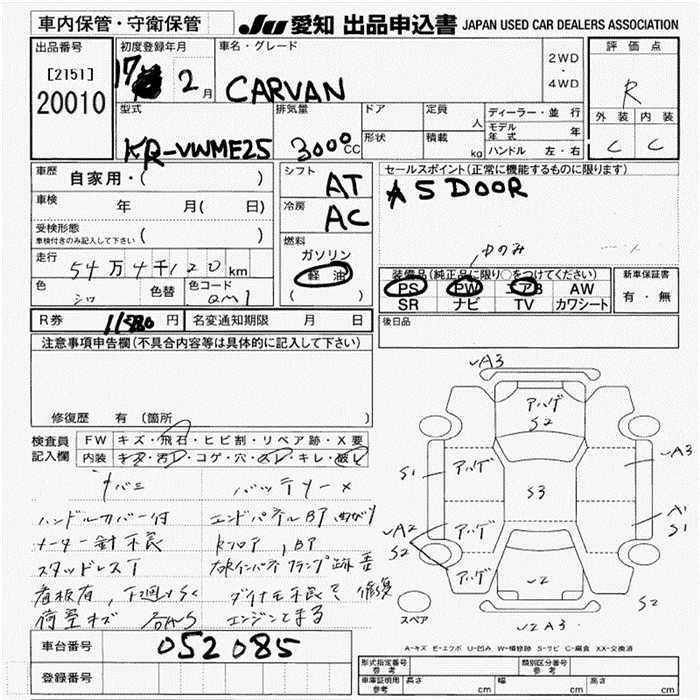 車内保管・守衛保管 JU 愛知 出品申込書 JAPAN USED CAR DEALERS ASSOCIATION
出品番号 初度登録年月 車名・グレード 2WD・4WD 評価点
[2151] 17 2月 CARVAN R
20010 型式 排気量 ドア 定員 人 ディーラー・並行 外装 内装
KR-VWME25 3000CC 形状 積載 kg モデル年式 年 C C
ハンドル 左・右
車歴 自家用・( ) シフト AT セールスポイント(正常に機能するものに限ります)
車検 年 月( 日) 冷房 AC 5DOOR
受検形態 車検付きのみ記入して下さい ( )
燃料 ガソリン 軽油 ( )
走行 54万4千120km 装備品(純正品に限り○をつけてください) 新車保証書
色 シロ 色替 色コード PS PW エアB AW 有・無
SR ナビ TV カワシート
R券 11580円 名変通知期限 月 日 後日品
注意事項申告欄(不具合内容等は具体的に記入して下さい)
修復歴 有 (箇所
検査員記入欄 FW キズ・飛石・ヒビ割・リペア跡・X要
内装 キズ・汚レ・コゲ・穴・スレ・キレ・破レ
サバミ バッテリー×
ハンドルカバー付 エンドパネルBP曲がり
メーター針不良
スタッドレスT
看板有、下回りサく ダイナモ不良で
荷室キズ エンジン止まる
車台番号 052085
登録番号
A3
アハゲ
S2
A3
S1 アハゲ
S3
A1
S1
A2
S2 アハゲ
アハゲ
S2
スペア
A-キズ E-エクボ U-凹み W-補修跡 S-サビ C-腐食 XX-交換済
形式指定番号 参考 類別区分番号 参考
車庫証明用 参考 長さ cm 幅 cm 高さ cm